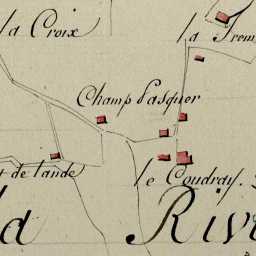 la Croix
la
Champ Pasquer
de lande
le Coudray
la Rivi